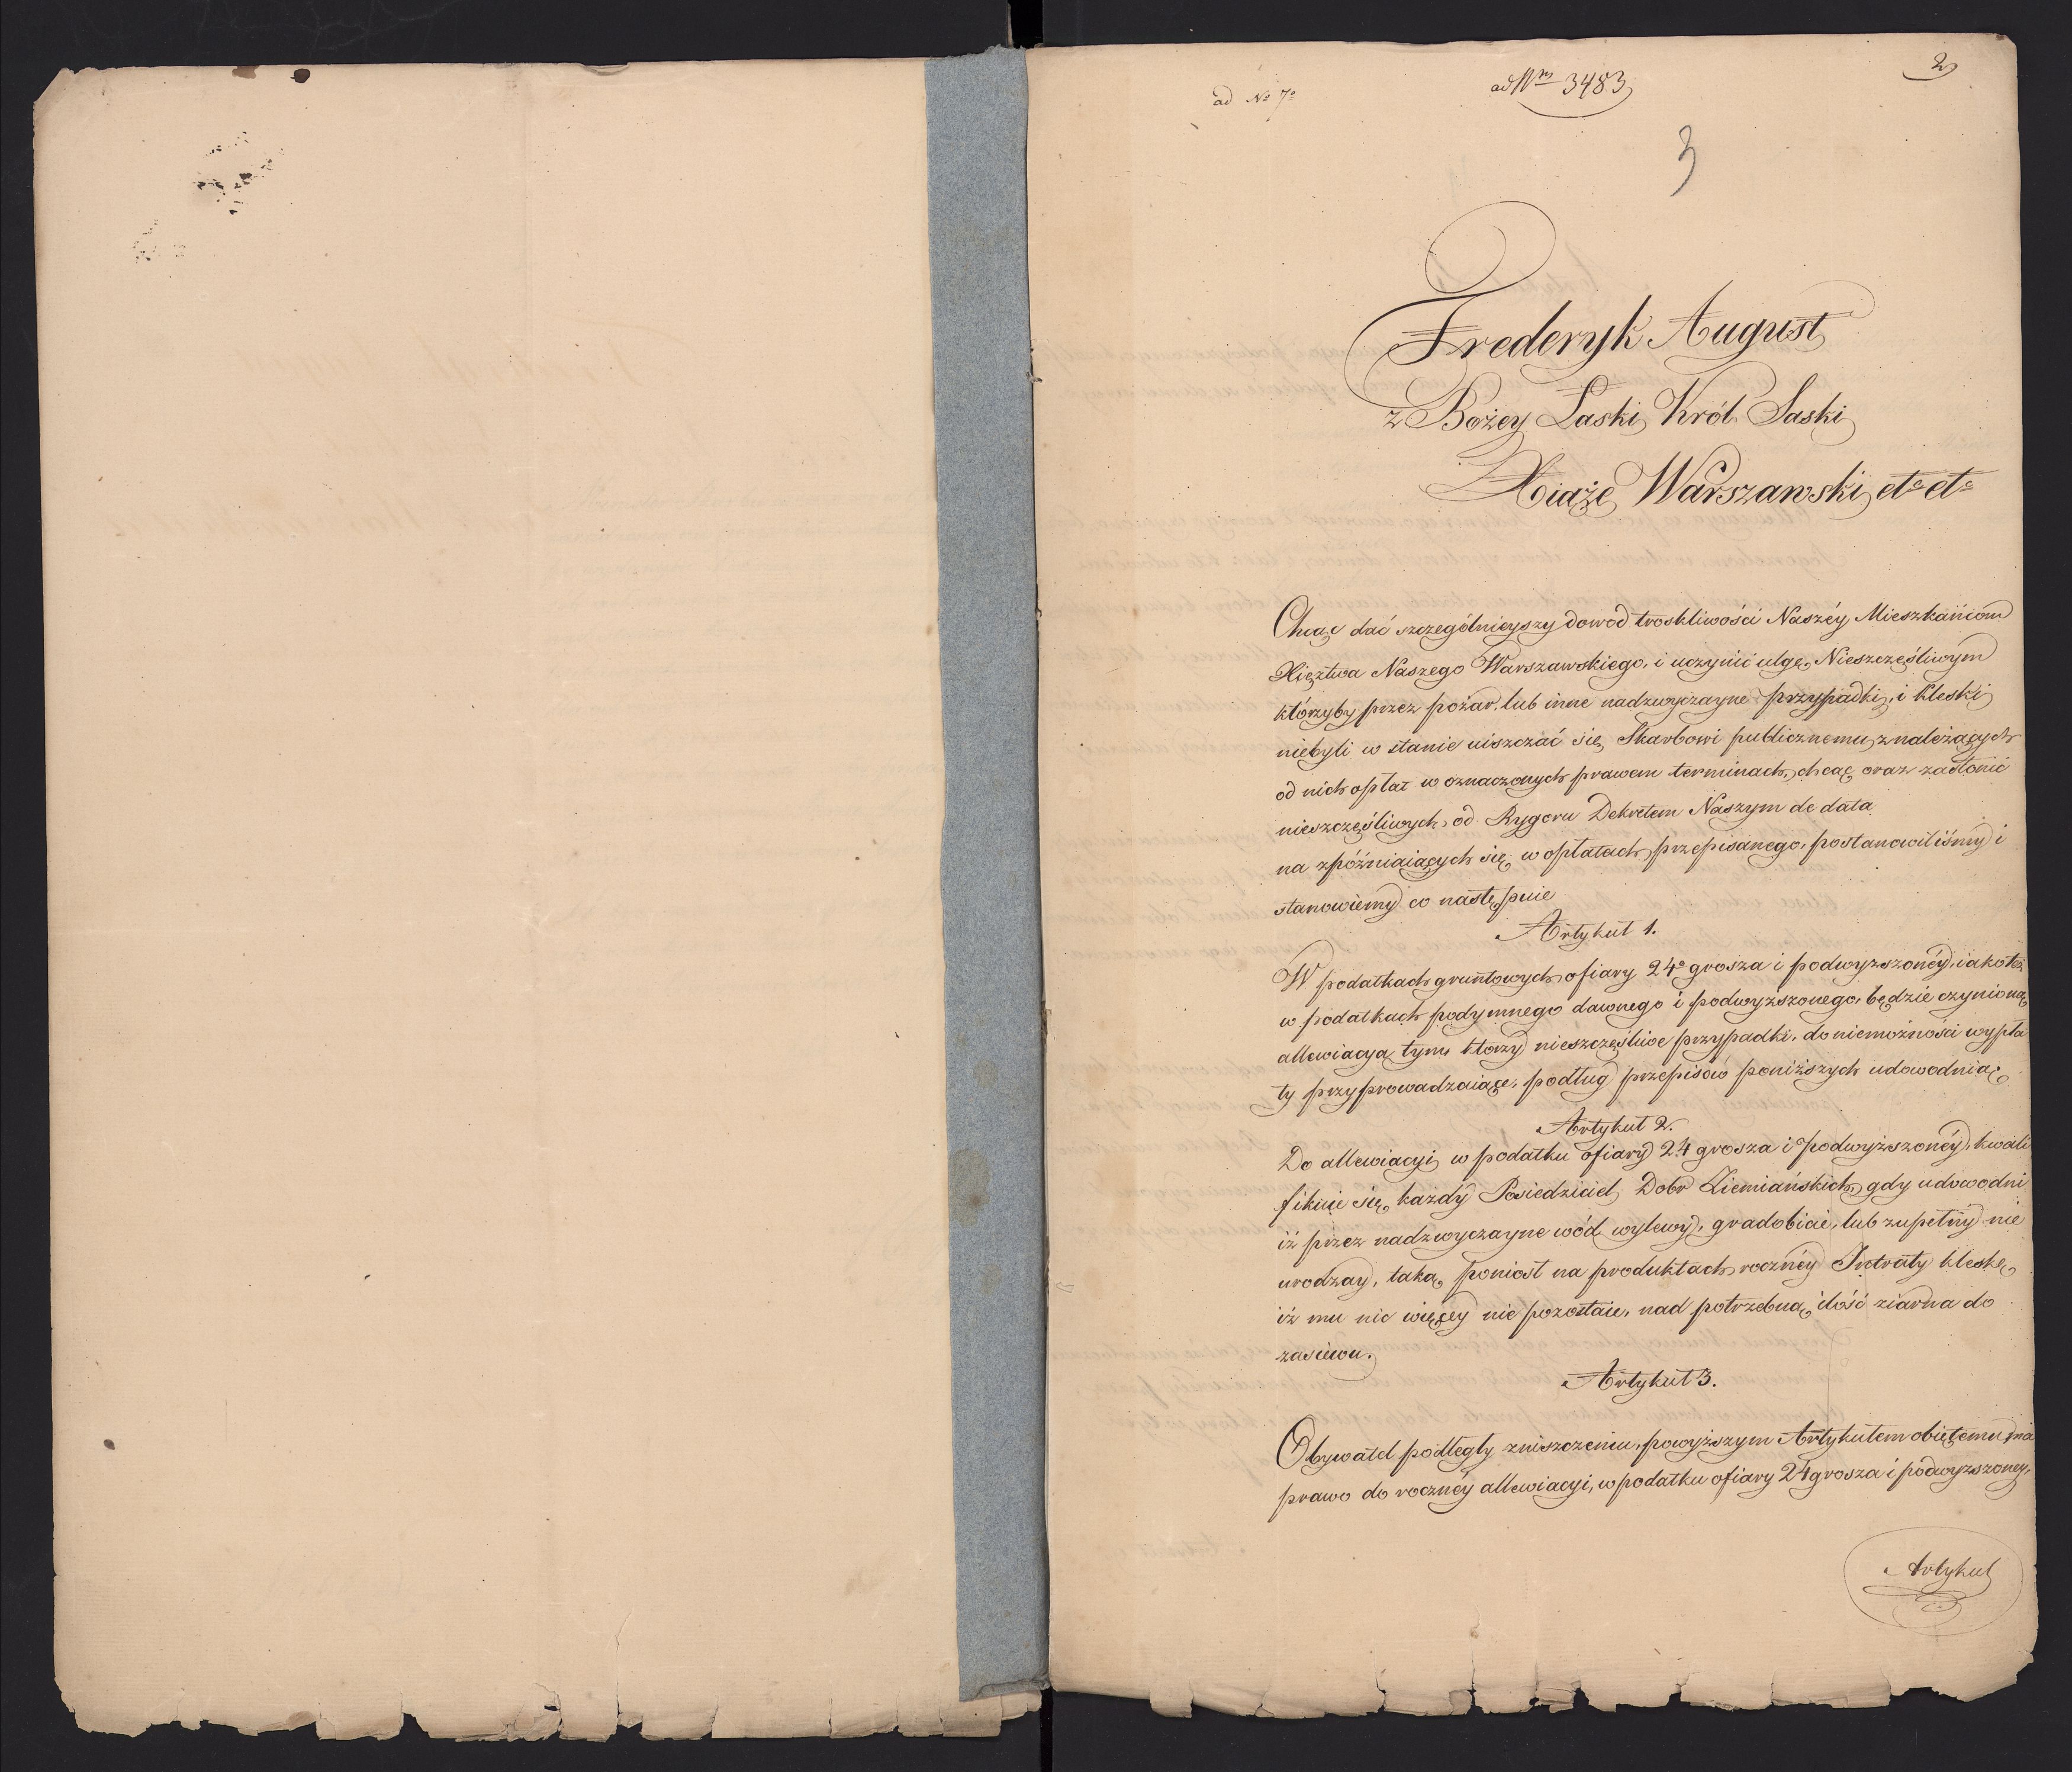 ad No 7o
ad Nrm 3483
2
3
Frederyk August
z Bożey Łaski Król Saski
Xiąże Warszawski etc etc
Chcąc dać szczególnieyszy dowód troskliwości Naszéy Mieszkańcom
Xięztwa Naszego Warszawskiego, i uczynić ulgę, Nieszczęśliwym
którzyby przez pożar, lub inne nadzwyczayne przypadki, i kleski
niebyli w stanie uiszczać się Skarbowi publicznemu, z należących
od nich opłat w oznaczonych prawem terminach, chcąc oraz zasłonić
nieszczęśliwych, od Rygoru Dekretem Naszym de data
na zpóźniaiących się w opłatach przepisanego, postanowiliśmy i
stanowiemy co następuie
Artykuł 1.
W podatkach gruntowych ofiary 24o grosza i podwyższonéy, iako też
w podatkach podymnego dawnego i podwyższonego, będzie czynioną
allewiacya tym, którzy nieszczęśliwe przypadki, do niemożności wypła
ty przyprowadzaiące, podług przepisów poniższych udowodnią.
Artykuł 2.
Do allewiacyi w podatku ofiary 24 grosza i Podwyższonéy, kwali
fikuie się, każdy Posiedziciel Dobr Ziemiańskich, gdy udowodni
iż przez nadzwyczayne wód wylewy, gradobicie, lub zupełny nie
urodzay, taką poniosł na produktach roczney Intraty kleskę,
iż mu nic więcey nie pozostaie, nad potrzebną ilość ziarna do
zasiewu.
Artykuł 3.
Obywatel podległy zniszczeniu, powyższym Artykułem obiętemu, ma
prawo do rocznéy allewiacyi, w podatku ofiary 24 grosza i podwyższoney,
Artykuł